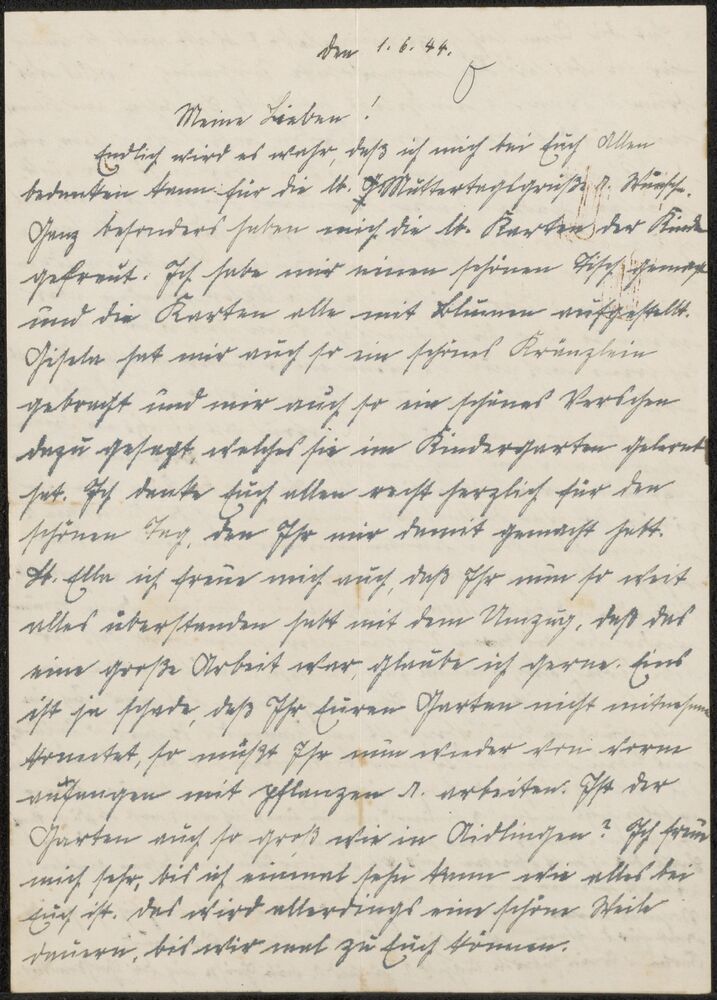 den 1.6.44.
Meine Lieben!
Endlich wird es wahr, daß ich mich bei Euch Allen
bedanken kann für die lb. Muttertagsgrüße u. Wünsche.
Ganz besonders haben mich die lb. Karten der Kinder
gefreut. Ich habe mir einen schönen Tisch gemacht
und die Karten alle mit Blumen aufgestellt.
Gisela hat mir auch so ein schönes Kränzlein
gebracht und mir auch so ein schönes Verschen
dazu gesagt, welches sie im Kindergarten gelernt
hat. Ich danke Euch allen recht herzlich für den
schönen Tag, den Ihr mir damit gemacht habt.
Lb. Ella ich freue mich auch, daß Ihr nun so weit
alles überstanden habt mit dem Umzug, daß das
eine große Arbeit war, glaube ich gerne. Eins
ist ja schade, daß Ihr Euren Garten nicht mitnehmen
konntet, so müßt Ihr nun wieder von vorne
anfangen mit pflanzen u. arbeiten. Ist der
Garten auch so groß wie in Aidlingen? Ich freue
mich sehr, bis ich einmal sehn kann wie alles bei
Euch ist. Das wird allerdings eine schöne Weile
dauern, bis wir mal zu Euch können.